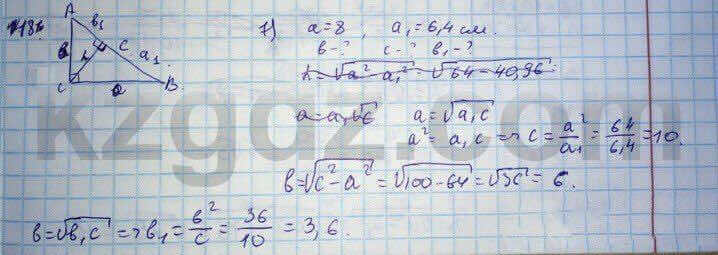 A
b₁
c
a₁
b
h
C
a
B
7) a = 8, a₁ = 6,4 см.
b-? c-? b₁-?
h = √(a² - a₁²) = √(64 - 40,96)
a = √(a₁c)
a² = a₁c ⇒ c = a²/a₁ = 64/6,4 = 10.
b = √(c² - a²) = √(100 - 64) = √36 = 6.
b = √(b₁c) ⇒ b₁ = b²/c = 36/10 = 3,6.
kzgdz.com